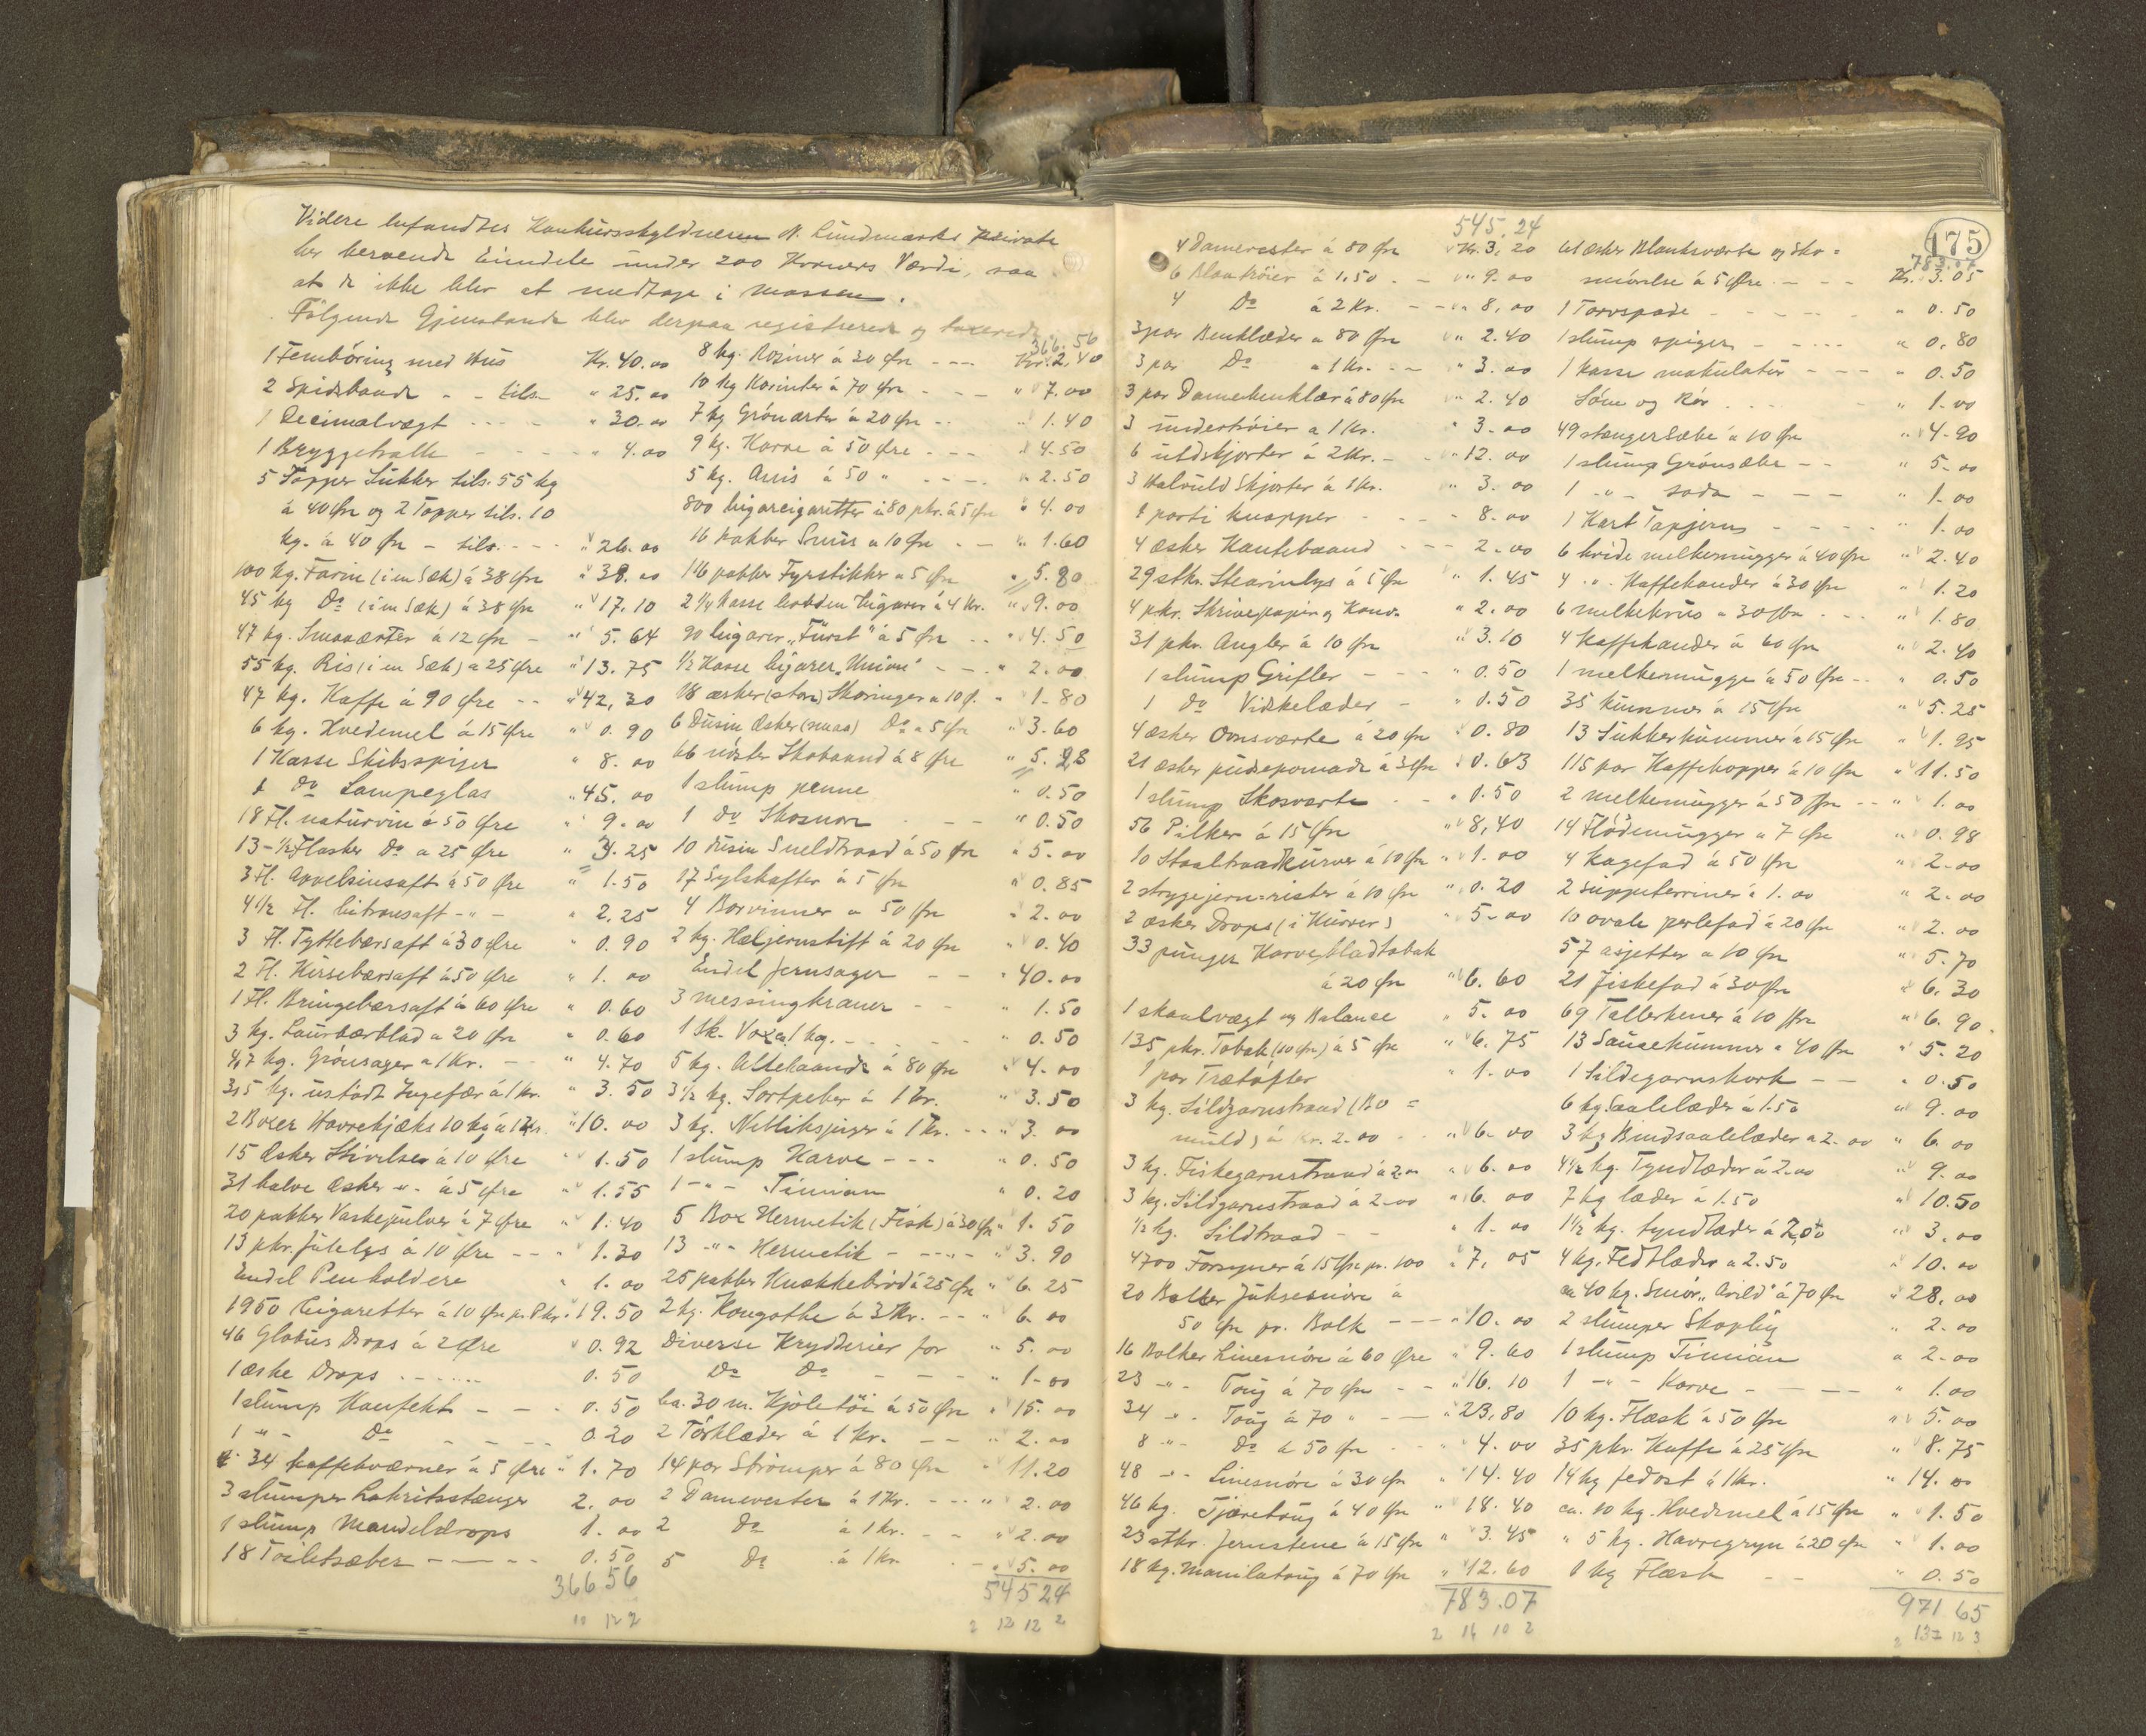 Videre befandtes Konkursskyldneren N. Lundmarks private
her beroende Eiendele under 200 Kroners Værdi, saa
at de ikke blev at medtage i massen.
Følgende Gjenstande blev derpaa registrerede og taxerede
1 Fembøring med Hus Kr. 40.00
2 Spidsbaade - - tils. " 25.00
1 Decimalvægt - - - - " 30.00
1 Bryggetralle - - - - " 4.00
5 Topper Sukker tils. 55 kg
à 40 Øre og 2 Topper tils. 10
kg. à 40 Øre - tils. - - - " 26.00
100 kg. Farin (i en Sæk) à 38 Øre " 38.00
45 kg Do (i en Sæk) à 38 Øre " 17.10
47 kg. Smaaærter à 12 Øre - " 5.64
55 kg. Ris (i en Sæk) à 25 Øre " 13.75
47 kg. Kaffe à 90 Øre - - " 42,30
6 kg. Hvedemel à 15 Øre " 0.90
1 Kasse Skibsspiger " 8.00
1 do Lampeglas " 45.00
18 Fl. naturvin à 50 Øre " 9.00
13 - 1/2 Flasker Do a 25 Øre " 3.25
3 Fl. Appelsinsaft à 50 Øre " 1.50
4 1/2 Fl. Citronsaft - " - " 2,25
3 Fl. Tyttebærsaft à 30 Øre " 0.90
2 Fl. Kirsebærsaft à 50 Øre " 1.00
1 Fl. Bringebærsaft à 60 Øre " 0.60
3 kg. Laurbærblad a 20 Øre " 0.60
4,7 kg. Grønsager a 1 Kr. - - " 4.70
3,5 kg. ustødt Ingefær à 1 Kr. " 3.50
2 Boxer Havrekjæks 10 kg à 1 Kr. " 10.00
15 Æsker Stivelse à 10 Øre " 1.50
31 halve Æsker -"- à 5 Øre " 1.55
20 pakker Vaskepulver à 7 Øre " 1.40
13 pkr. Julelys à 10 Øre - - - " 1.30
Endel Penholdere " 1.00
1950 Cigaretter à 10 Øre pr. Pkr. " 19.50
46 Globus Drops à 2 Øre " 0.92
1 æske Drops - - - - - 0.50
1 slump Konfekt - - - 0.50
1 -"- Do - - - - 0.20
34 kaffekværner à 5 Øre " 1.70
3 slumper Lakritsstænger 2.00
1 slump Mandeldrops 1.00
18 Toiletsæber - - - - 0.50
366 56
10 12 2
366.56
8 kg. Rosiner à 30 Øre - - - Kr. 2,40
10 kg Korinter à 70 Øre - - - " 7.00
7 kg Grønærter à 20 Øre - - " 1.40
9 kg. Karve à 50 Øre - - - " 4.50
5 kg. Anis à 50 " - - - - " 2.50
800 Cigarcigaretter i 80 pkr. à 5 Øre " 4.00
16 pakker Snus a 10 Øre - - " 1.60
116 pakker Fyrstikker a 5 Øre " 5.80
2 1/4 kasse Cigarer à 4 Kr. " 9.00
90 Cigarer "Fürst" à 5 Øre - - " 4.50
1/2 Kasse Cigarer "Union" - - - " 2.00
18 æsker (store) Skoringer a 10 Ø. - " 1.80
6 Dusin Æsker (smaa) Do a 5 Øre " 3.60
66 nøster Skobaand à 8 Øre " 5.28
1 slump penne " 0.50
1 do Skosnore - - - " 0.50
10 dusin Sneldtraad à 50 Øre " 5.00
17 Sylskafter à 5 Øre " 0.85
4 Borvinner a 50 Øre " 2.00
2 kg. Hæljernstift à 20 Øre " 0.40
Endel Jernsager - - " 40.00
3 messingkraner - - " 1.50
1 Sk. Vox a 1 kg. - - - - " 0.50
5 kg. Allehaande à 80 Øre " 4.00
3 1/2 kg. Sortpeber à 1 Kr. " 3.50
3 kg. Nellikspiger à 1 Kr. - - " 3.00
1 slump Karve - - - " 0.50
1 -"- Timian " 0.20
5 Box Hermetik (Fisk) à 30 Øre " 1.50
13 -"- Hermetik - - - " - " 3.90
25 pakker Knækkebrød à 25 Øre " 6.25
2 kg. Kongothe à 3 Kr. - - " 6.00
Diverse Krydderier for " 5.00
Do Do - - - " 1.00
Ca. 30 m. Kjoletøi à 50 Øre " 15.00
2 Tørklæder à 1 Kr. - - " 2.00
14 par Strømper à 80 Øre " 11.20
2 Damevester à 1 Kr. - - - " 2.00
2 Do à 1 kr. - - " 2.00
5 Do à 1 Kr. - - " 5.00
545 24
2 12 12 2
545.24
4 Damevester à 80 Øre Kr. 3,20
6 Blaatrøier à 1.50 - - " 9.00
4 Do à 2 Kr. - - " 8,00
3 par Benklæder a 80 Øre " 2.40
3 par Do a 1 Kr. - - " 3.00
3 par Damebenklær à 80 Øre " 2.40
3 undertrøier a 1 Kr. " 3.00
6 uldskjorter à 2 Kr. - " 12.00
3 Halvuld Skjorter à 1 Kr. " 3.00
1 parti knapper - - - 8.00
4 æsker Kantebaand - - - 2.00
29 stk. Stearinlys à 5 Øre " 1.45
4 pkr. Skrivepapir og Konv. " 2.00
31 pkr. Angler à 10 Øre " 3.10
1 slump Grifler - - - " 0.50
1 do Viskelæder - " 0.50
4 æsker Ovnsværte à 20 Øre " 0.80
21 æsker pudsepomade à 3 Øre " 0.63
1 slump Skosværte - - " 0.50
56 Pilker à 15 Øre " 8,40
10 Staaltraadkurver à 10 Øre " 1.00
2 strygejernsrister à 10 Øre " 0.20
2 æsker Drops (i Kurver) " 5.00
33 punger Karvebladtobak
à 20 Øre " 6.60
1 skaalvægt og Balance " 5.00
135 pkr. Tobak (10 Øre) à 5 Øre " 6.75
1 par Trætøfler " 1.00
3 kg. Sildgarnstraad (Bo =
muld) à Kr. 2.00 - - " 6.00
3 kg. Fiskegarnstraad à 2.00 " 6.00
3 kg. Sildgarnstraad à 2.00 " 6.00
1/2 kg. Sildtraad - - " 1.00
4700 Forsyner à 15 Øre pr. 100 " 7,05
20 Bolker Juksesnøre à
50 Øre pr. Bolk - - - " 10.00
16 Bolker Linesnøre à 60 Øre " 9.60
23 -"- Toug à 70 Øre - - " 16.10
34 -"- Toug à 70 " - - " 23,80
8 -"- Do à 50 Øre - - " 4.00
48 -"- Linesnøre à 30 Øre " 14.40
46 kg. Tjæretoug à 40 Øre " 18.40
23 stkr. Jernstene à 15 Øre " 3.45
18 kg. Manilatoug à 70 Øre " 12.60
783.07
2 16 10 2
175
783.07
61 æsker Blanksværte og Sko =
smørelse à 5 Øre - - - Kr. 3.05
1 Torvspade - - - - - " 0.50
1 slump spiger - - - - " 0.80
1 kasse makulatur - - - " 0.50
Søm og Rør - - - " 1.00
49 stænger Sæbe à 10 Øre " 4.90
1 slump Grønsæbe - - " 5.00
1 -"- soda - - - " 1.00
1 Kart Tapjern - - - - " 1.00
6 hvide melkemugger à 40 Øre " 2.40
4 -"- Kaffekander à 30 Øre " 1.20
6 melkekrus a 30 Øre - - - " 1.80
4 Kaffekander à 60 Øre " 2.40
1 melkemugge à 50 Øre - - " 0.50
35 kummer à 15 Øre " 5.25
13 Sukkerkummer à 15 Øre " 1.95
115 par Kaffekopper à 10 Øre " 11.50
2 melkemugger à 50 Øre - - " 1.00
14 Flødemugger a 7 Øre " 0.98
4 Kagefad à 50 Øre " 2.00
2 Suppeterriner à 1.00 " 2.00
10 ovale perlefad à 20 Øre " 2.00
57 asjetter a 10 Øre " 5.70
21 Fiskefad à 30 Øre " 6.30
69 Tallerkener à 10 Øre " 6.90
13 Sausekummer a 40 Øre " 5.20
1 Sildegarnskork - - " 0.50
6 kg. Saalelæder à 1.50 " 9.00
3 kg Bindsaalelæder a 2.00 " 6.00
4 1/2 kg. Tyndlæder à 2.00 " 9.00
7 kg læder à 1.50 " 10.50
1 1/2 kg. tyndlæder à 2,00 " 3.00
4 kg. Fedtlæder a 2.50 " 10.00
ca 40 kg. Smør "Arild" à 70 Øre " 28.00
2 slumper Skoplug " 2.00
1 slump Timian " 2.00
1 -"- Karve - - - - " 1.00
10 kg. Flæsk à 50 Øre " 5.00
35 pkr. Kaffe à 25 Øre " 8.75
14 kg fedost à 1 kr. " 14.00
ca. 10 kg. Hvedemel à 15 Øre " 1.50
" 5 kg. Havregryn à 20 Øre " 1.00
1 kg Flæsk - - " 0.50
971 65
2 132 12 3